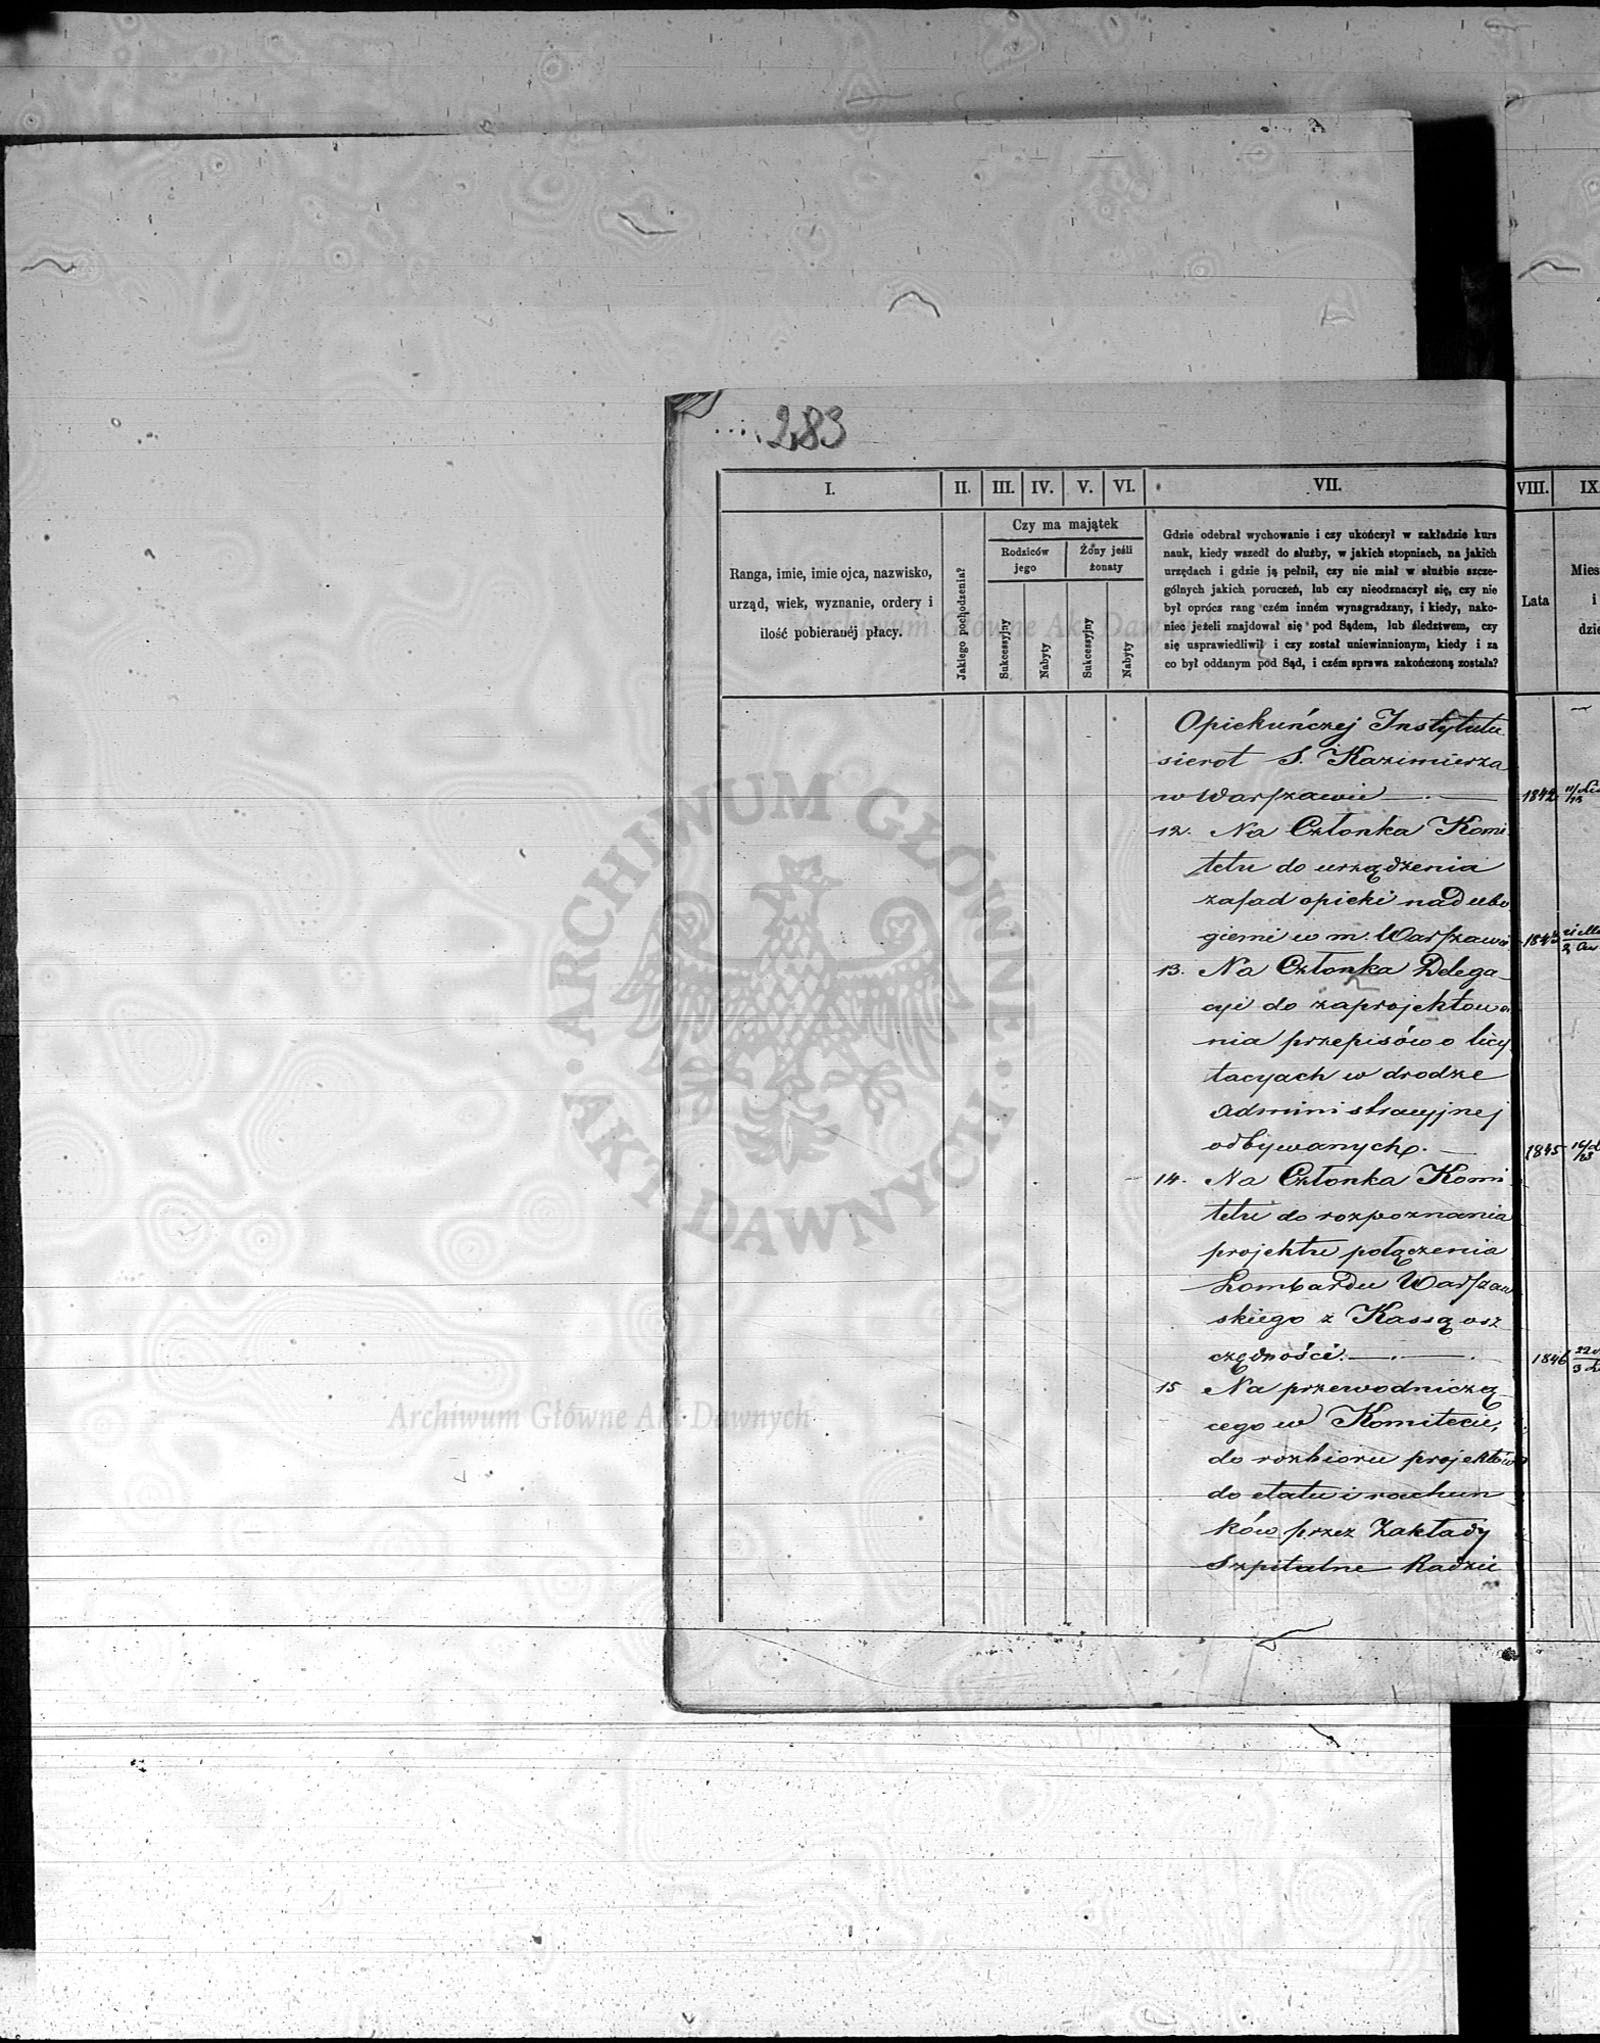 283
I. II. III. IV. V. VI. VII. VIII. IX
Ranga, imie, imie ojca, nazwisko,
urząd, wiek, wyznanie, ordery i
ilość pobieranéj płacy.
Jakiego pochodzenia?
Czy ma majątek
Rodziców
jego
Żony jeśli
żonaty
Sukcessyjny
Nabyty
Sukcessyjny
Nabyty
Gdzie odebrał wychowanie i czy ukończył w zakładzie kurs
nauk, kiedy wszedł do służby, w jakich stopniach, na jakich
urzędach i gdzie ją pełnił, czy nie miał w służbie szcze-
gólnych jakich poruczeń, lub czy nieodznaczył się, czy nie
był oprócz rang czém inném wynagradzany, i kiedy, nako-
niec jeżeli znajdował się pod Sądem, lub śledztwem, czy
się usprawiedliwił i czy został uniewinnionym, kiedy i za
co był oddanym pod Sąd, i czém sprawa zakończoną została?
Lata
Mies
i
dzie
Opiekuńczej Instytutu
sierot S. Kazimierza
w Warszawie 1842
12. Na Członka Komi
tetu do urządzenia
zasad opieki nad ubo
giemi w m. Warszawie
13. Na Członka Delega
cyi do zaprojektowa
nia przepisów o licy
tacyach w drodze
administracyjnej
odbywanych. 1845
14. Na Członka Komi
tetu do rozpoznania
projektu połączenia
Lombardu Warszaw
skiego z Kassą osz
czędności. 1846
15 Na przewodniczą
cego w Komitecie,
do rozbioru projektów
do etatu i rachun
ków przez Zakłady
Szpitalne Radzie
ARCHIWUM GŁÓWNE
AKT DAWNYCH
Archiwum Główne Akt Dawnych
Archiwum Główne Akt Dawnych